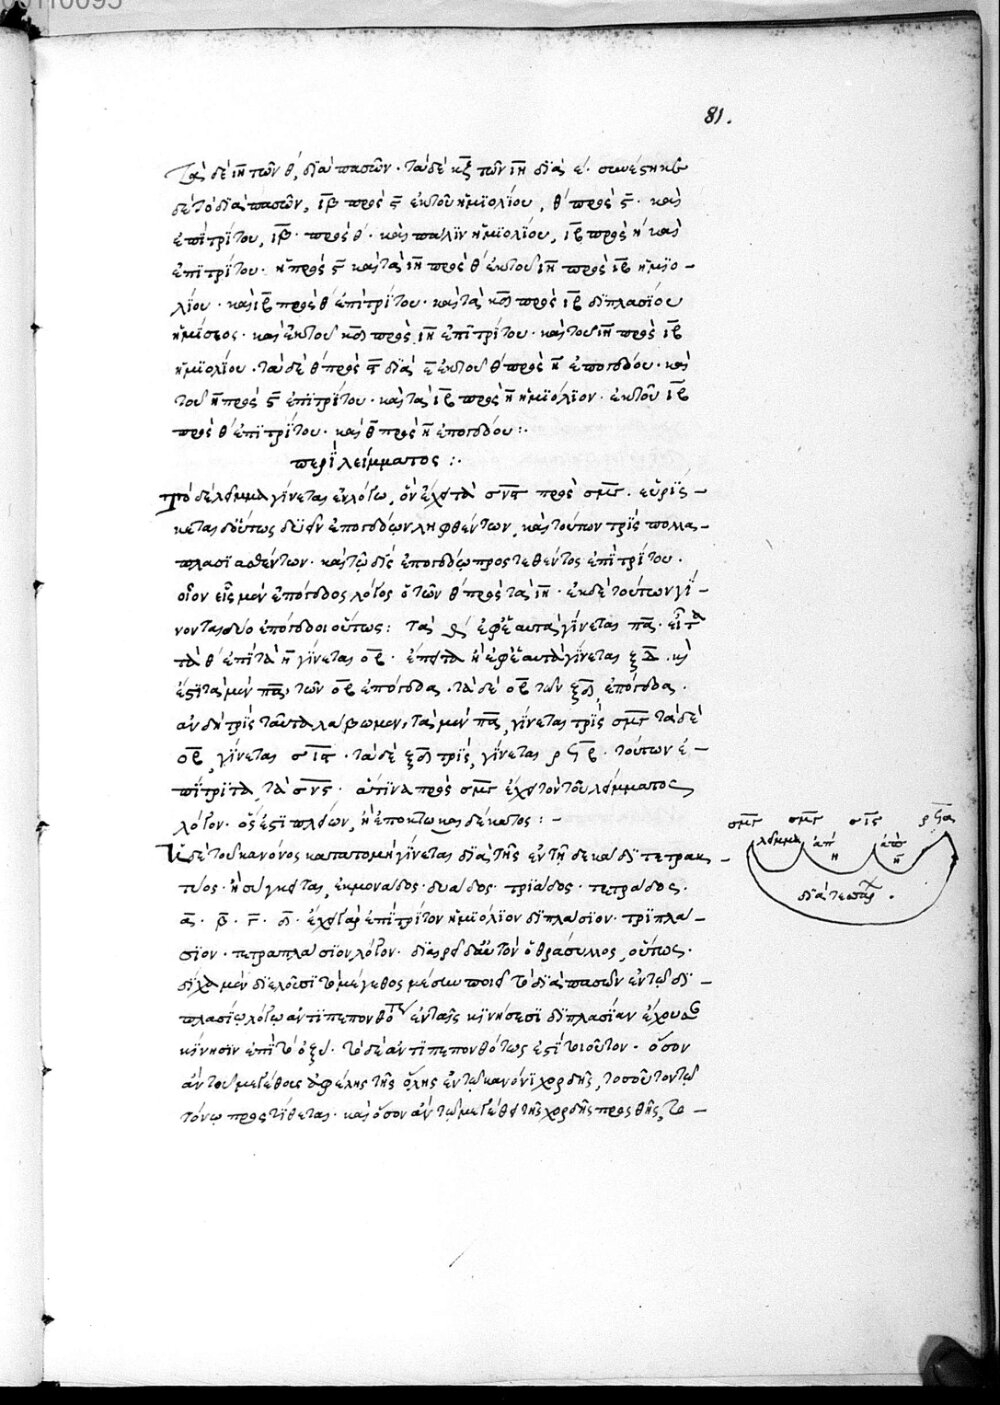 81.
Τὰ δὲ ιη τῶν θ, διὰ πασῶν· τὰ δὲ κζ τῶν ιη διὰ ε· συνέστηκε
δὲ τὸ διὰ πασῶν, ιβ πρὸς ς ἐκ τοῦ ἡμιολίου, θ πρὸς ς· καὶ
ἐπιτρίτου, ιβ· πρὸς θ· καὶ πάλιν ἡμιολίου, ιβ πρὸς η καὶ
ἐπιτρίτου· η πρὸς ς καὶ τὰ ιη πρὸς θ ἐκ τοῦ ιη πρὸς ιβ ἡμιο-
λίου· καὶ ιβ πρὸς θ ἐπιτρίτου· καὶ τὰ κδ πρὸς ιβ διπλασίου
ἡμίσεος· καὶ ἐκ τοῦ κδ πρὸς ιη ἐπιτρίτου· καὶ τοῦ ιη πρὸς ιβ
ἡμιολίου· τὰ δὲ θ πρὸς ς διὰ ε ἐκ τοῦ θ πρὸς η ἐπογδόου· καὶ
τοῦ η πρὸς ς ἐπιτρίτου· καὶ τὰ ιβ πρὸς η ἡμιόλιον· ἐκ τοῦ ιβ
πρὸς θ ἐπιτρίτου· καὶ θ πρὸς η ἐπογδόου:·
περὶ λείμματος :·
Τὸ δὲ λεῖμμα γίνεται ἐν λόγῳ, ὃν ἔχει τὰ σνς πρὸς σμγ. εὑρίσ-
κεται δὲ οὕτως δυεῖν ἐπογδόων ληφθέντων, καὶ τούτων τρὶς πολλα-
πλασιασθέντων· καὶ τῷ δὶς ἐπογδόῳ προστεθέντος ἐπιτρίτου·
οἷον εἷς μὲν ἐπόγδοος λόγος ὁ τῶν θ πρὸς τὰ η· ἐκ δὲ τούτων γί-
νονται δύο ἐπόγδοοι οὕτως: τὰ θ ἐφ' ἑαυτὰ γίνεται πα· εἶτα
τὰ θ ἐπὶ τὰ η γίνεται οβ· ἔπειτα τὰ η ἐφ' ἑαυτὰ γίνεται ξδ· κὶ
ἐστὶ τὰ μὲν πα, τῶν οβ ἐπόγδοα· τὰ δὲ οβ τῶν ξδ, ἐπόγδοα·
ἂν δὴ τρὶς ταῦτα λάβωμεν, τὰ μὲν πα, γίνεται τρὶς σμγ τὰ δὲ
οβ, γίνεται σις· τὰ δὲ ξδ τρὶς, γίνεται ρϟβ· τούτων ἐ-
πίτριτα, τὰ σνς· ἅτινα πρὸς σμγ ἔχει τὸν τοῦ λείμματος
λόγον· ὅς ἐστι πλείων, ἢ ἐποκτωκαιδέκατος: -
Ἡ δὲ τοῦ κανόνος κατατομὴ γίνεται διὰ τῆς ἐν τῇ δεκάδι τετρακ-
τύος· ἣ σύγκειται, ἐκ μονάδος· δυάδος· τριάδος· τετράδος·
α· β· γ· δ· ἔχει γὰρ ἐπίτριτον ἡμιόλιον διπλάσιον· τριπλά-
σιον· τετραπλάσιον λόγον· διαιρεῖ δ' αὐτὸν ὁ θράσυλλος, οὕτως·
δίχα μὲν διελὼν τὸ μέγεθος μέσην ποιεῖ τὸ διὰ πασῶν ἐν τῷ δι-
πλασίῳ λόγῳ ἀντιπεπονθότως ἐν ταῖς κινήσεσι διπλασίαν ἔχουσαν
κίνησιν ἐπὶ τὸ ὀξύ· τὸ δὲ ἀντιπεπονθότως ἐστὶ τοιοῦτον· ὅσον
ἂν τοῦ μεγέθους ἀφέλῃς τῆς ὅλης ἐν τῷ κανόνι χορδῆς, τοσοῦτον τῷ
τόνῳ προστίθεται· καὶ ὅσον ἂν τῷ μεγέθει τῆς χορδῆς προσθῇς, το-
σμγ σμγ σις ρϟα
λεῖμμα ἐπ η ἐπο η
διὰ τεσσάρ.